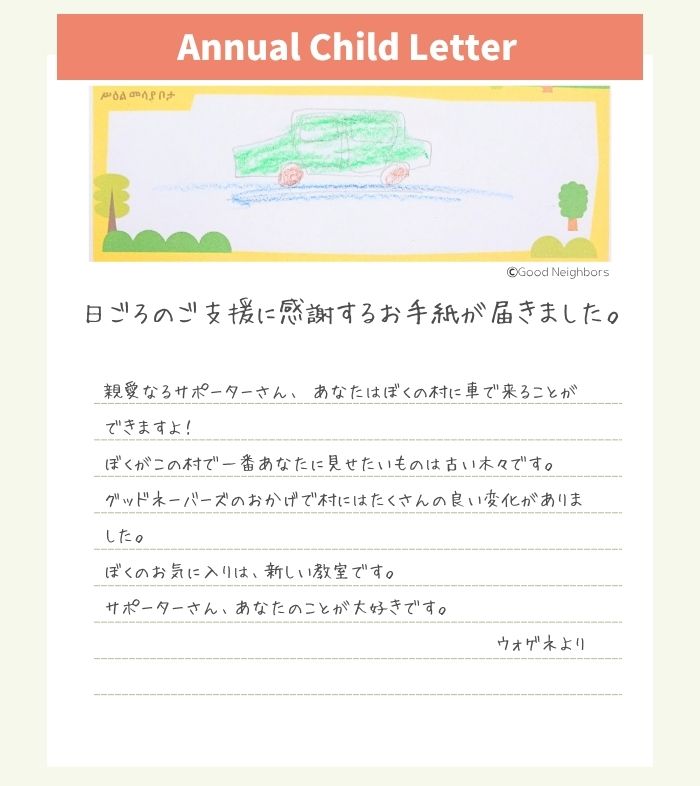 Annual Child Letter
ሥዕል መሳያ ቦታ
©Good Neighbors
日ごろのご支援に感謝するお手紙が届きました。
親愛なるサポーターさん、 あなたはぼくの村に車で来ることが
できますよ!
ぼくがこの村で一番あなたに見せたいものは古い木々です。
グッドネーバーズのおかげで村にはたくさんの良い変化がありま
した。
ぼくのお気に入りは、新しい教室です。
サポーターさん、あなたのことが大好きです。
ウォゲネより